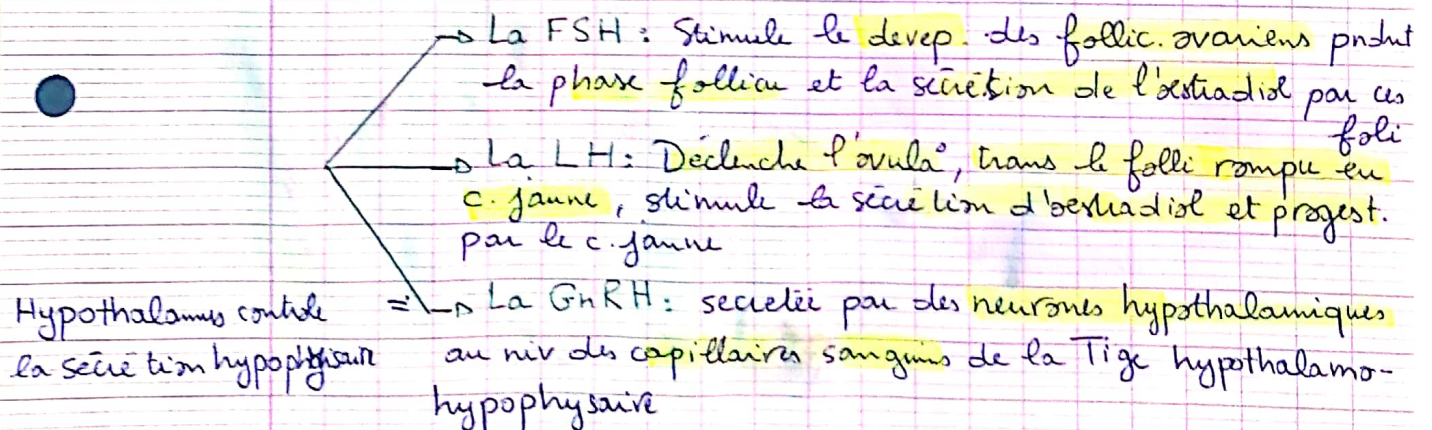 → La FSH : Stimule le devep. des follic. ovariens pndnt
la phase follicu et la sécrétion de l'œstradiol par ces
foli
→ La LH : Déclenche l'ovula°, trans le folli rompu en
c. jaune, stimule la sécrétion d'oestradiol et progest.
par le c. jaune
Hypothalamus controle => La GnRH : secretée par des neurones hypothalamiques
la sécrétion hypophysaire au niv des capillaires sanguins de la Tige hypothalamo-
hypophysaire